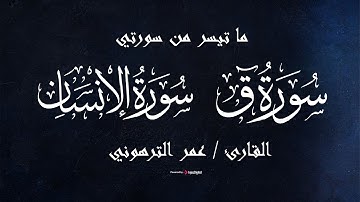 ما تيسر من سورتي
سُورَةُ قٓ سُورَةُ الإِنسَانِ
القارئ / عمر الترهوني